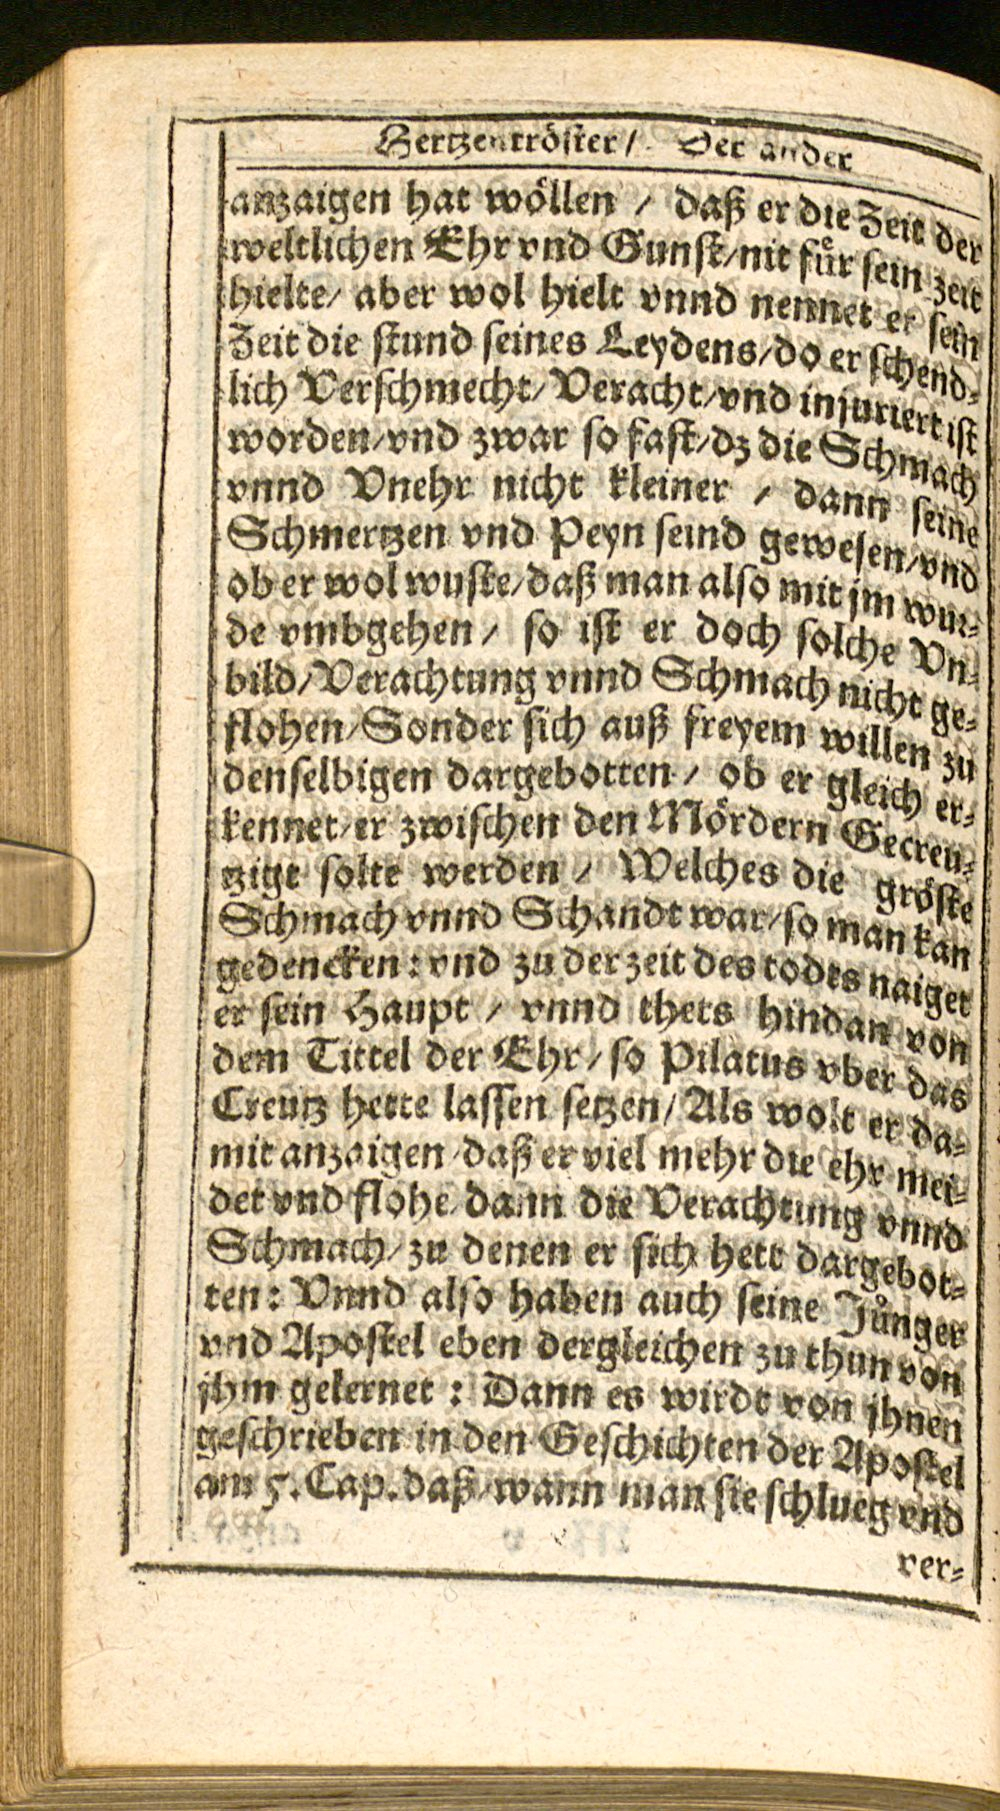 Hertzentröster/ Der ander
anzaigen hat wöllen / daß er die Zeit der
weltlichen Ehr vnd Gunst/nit fuͤr sein zeit
hielte/ aber wol hielt vnnd nennet er sein
Zeit die stund seines Leydens/do er schend-
lich Verschmecht/Veracht/vnd injuriert ist
worden/vnd zwar so fast/dz die Schmach
vnnd Vnehr nicht kleiner / dann seine
Schmertzen vnd Peyn seind gewesen/vnd
ob er wol wuste/daß man also mit jm wur-
de vmbgehen / so ist er doch solche Vn-
bild/Verachtung vnnd Schmach nicht ge-
flohen/Sonder sich auß freyem willen zu
denselbigen dargebotten / ob er gleich er-
kennet/er zwischen den Mördern Gecreu-
tzigt solte werden / Welches die gröste
Schmach vnnd Schandt war/so man kan
gedencken: vnd zu der zeit des todes naiget
er sein Haupt / vnnd thets hindan von
dem Tittel der Ehr/so Pilatus vber das
Creutz hette lassen setzen/Als wolt er da-
mit anzaigen daß er viel mehr die ehr mei-
det vnd flohe dann die Verachtung vnnd
Schmach/zu denen er sich hett dargebot-
ten: Vnnd also haben auch seine Juͤnger
vnd Apostel eben dergleichen zu thun von
jhm gelernet: Dann es wirdt von jhnen
geschrieben in den Geschichten der Apostel
am 5. Cap. daß/wann man sie schlueg vnd
ver-